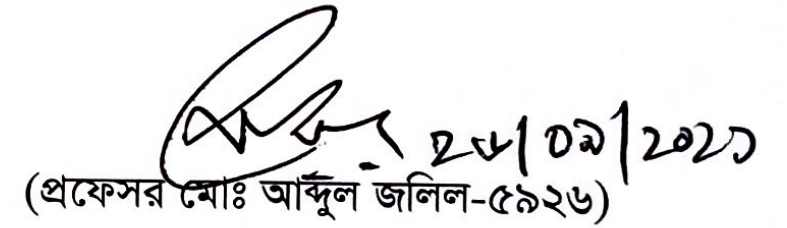 ২৮/০৯/২০২১
(প্রফেসর মোঃ আব্দুল জলিল-৫৯২৬)